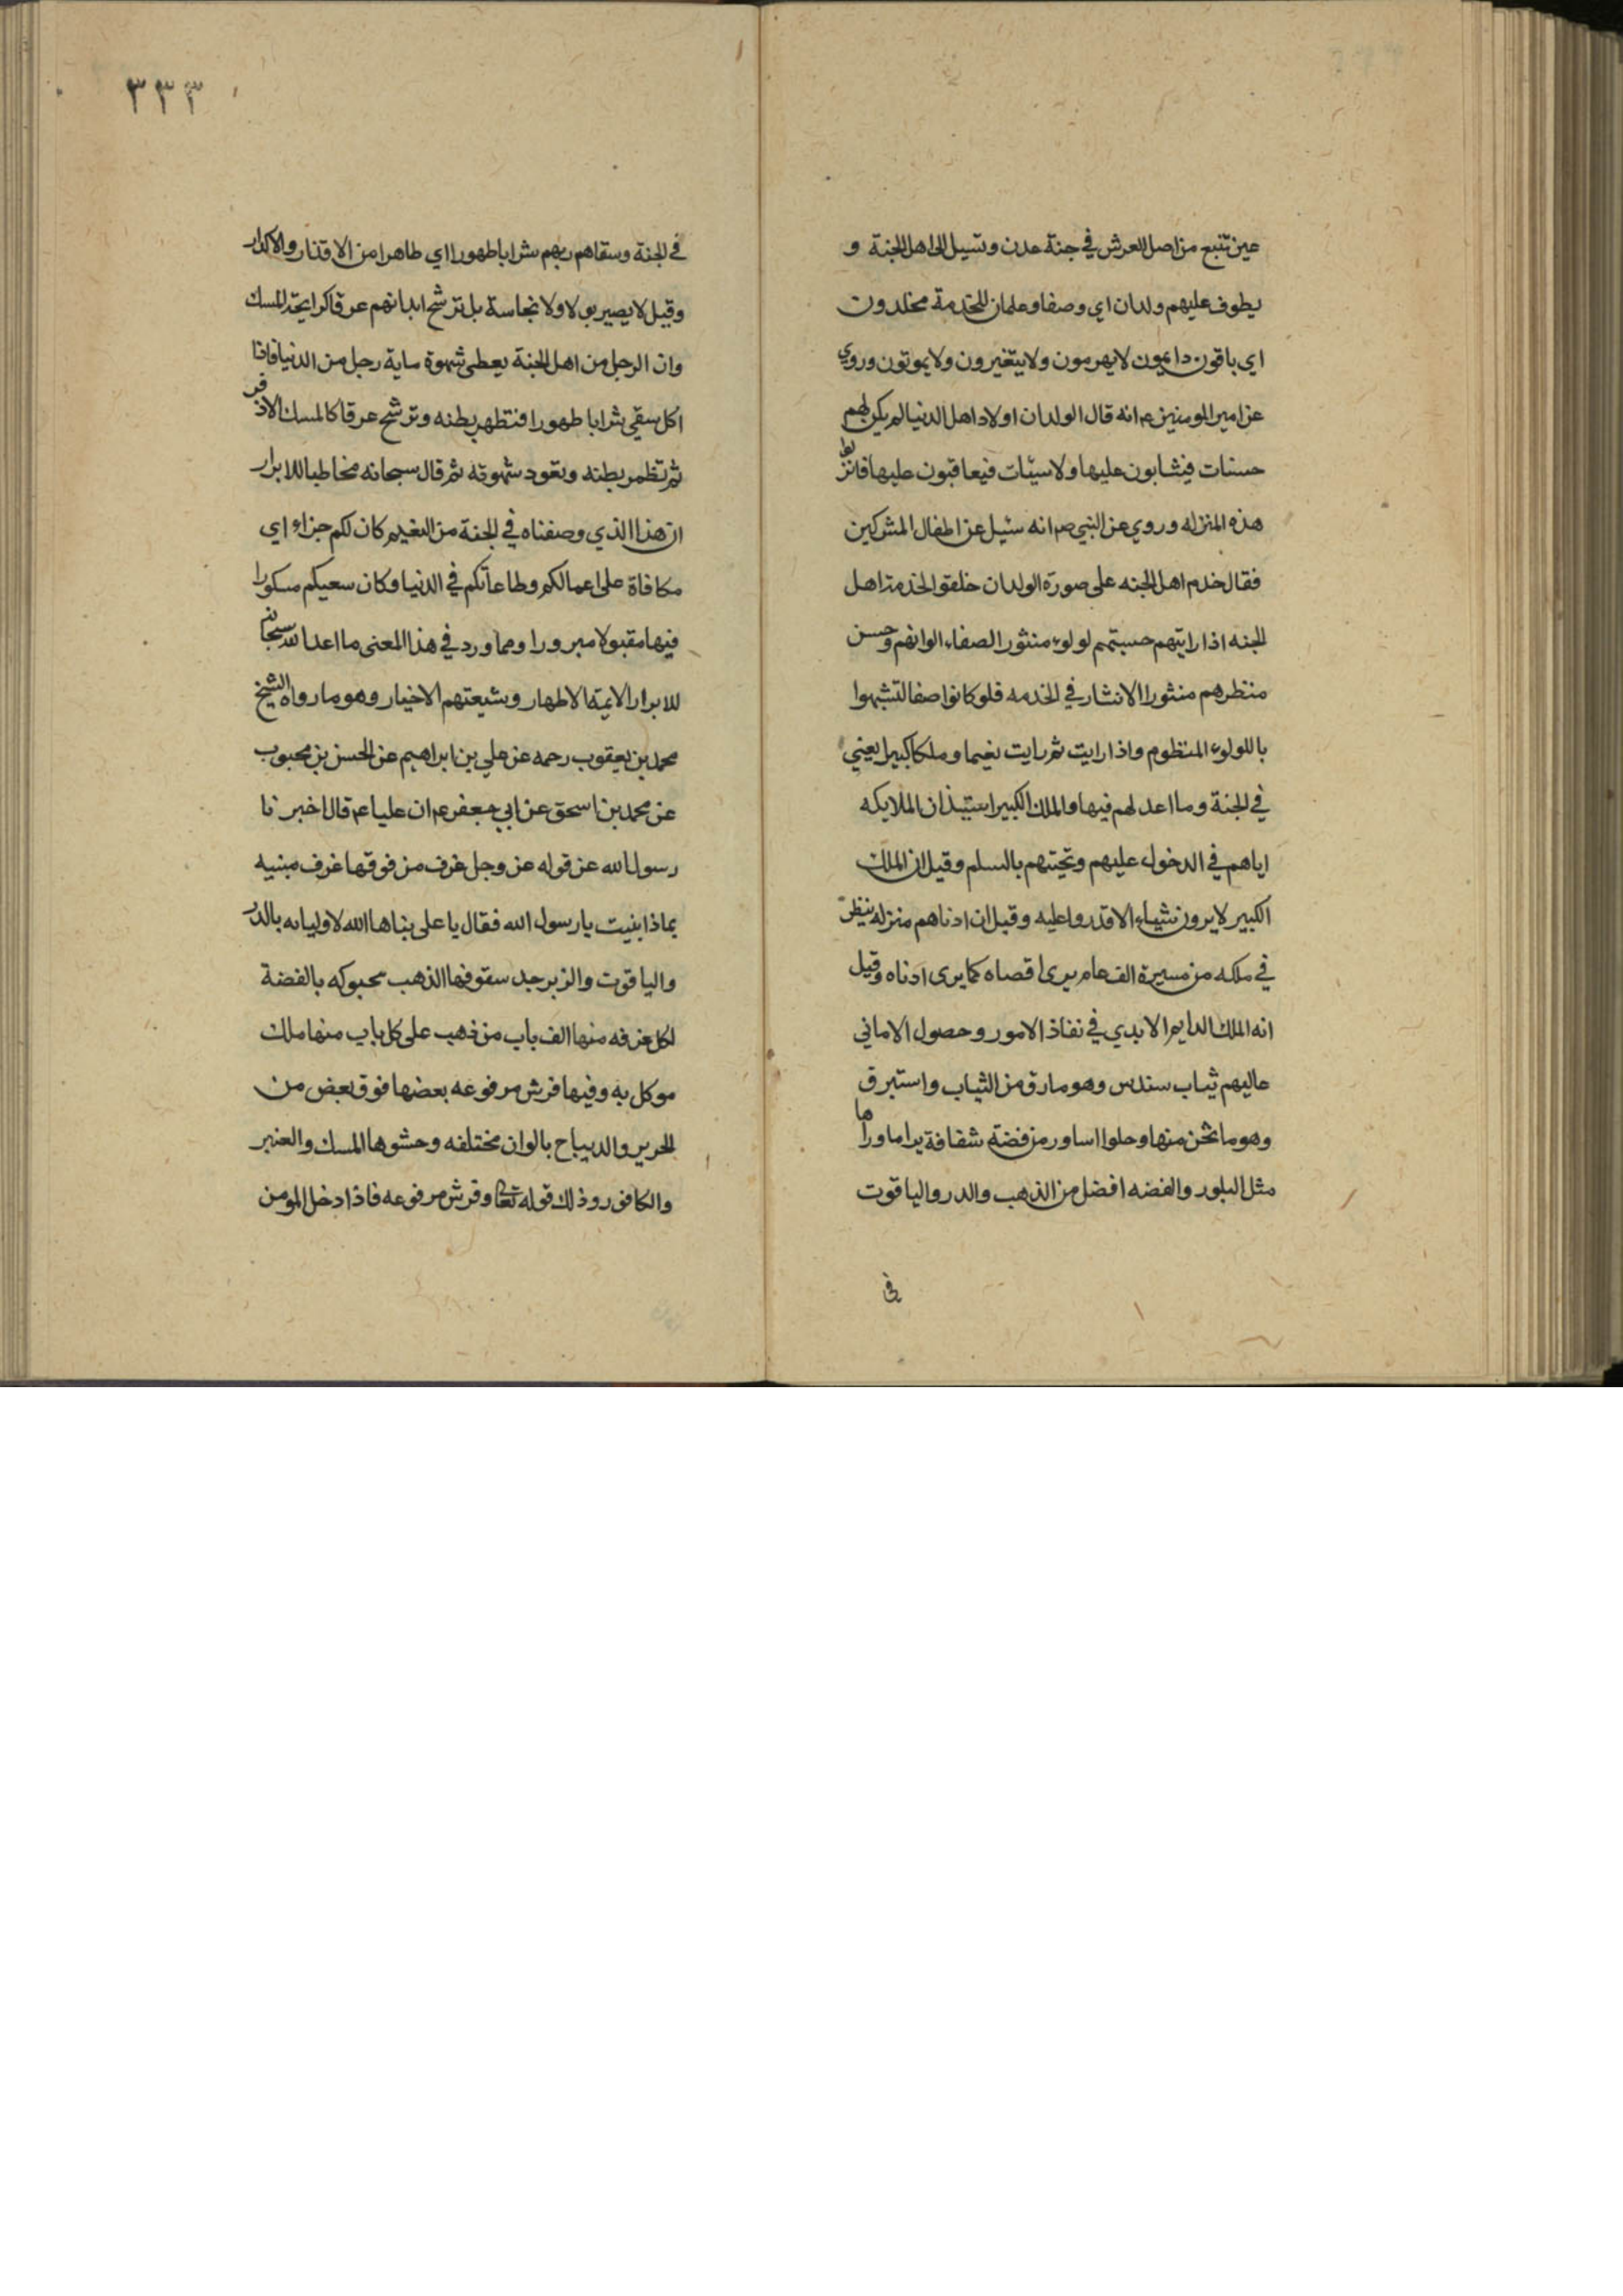 عين تنبع من اصل العرش في جنة عدن وتسيل الى اهل الجنة و
يطوف عليهم ولدان اي وصفا وغلمان للخدمة مخلدون
اي باقون دايمون لا يهرمون ولا يتغيرون ولا يموتون وروي
عن امير المومنين ع انه قال الولدان اولاد اهل الدنيا لم يكن لهم
حسنات فيثابون عليها ولا سيئات فيعاقبون عليها فانزلوا
هذه المنزله وروي عن النبي ص انه سئيل عن اطفال المشركين
فقال خدم اهل الجنه على صورة الولدان خلقوا لخدمة اهل
الجنه اذا رايتهم حسبتهم لولوء منثورا لصفاء الوانهم وحسن
منظرهم منثورا لانتشار في الخدمه فلو كانوا صفا لتشبهوا
باللولوء المنظوم واذا رايت ثم رايت نعيما وملكا كبيرا يعني
في الجنة وما اعد لهم فيها والملك الكبير استيذان الملايكه
اياهم في الدخول عليهم وتحيتهم بالسلم وقيل ان الملك
الكبير لا يرون شيئاء الا قدروا عليه وقيل ان ادناهم منزله ينظر
في ملكه من مسيرة الف عام يرى اقصاه كما يرى ادناه وقيل
انه الملك الدايم الابدي في نفاذ الامور وحصول الاماني
عاليهم ثياب سندس وهو مارق من الثياب واستبرق
وهو ما ثخن منها وحلوا اساور من فضة شفافة يرا ما وراها
مثل البلور والفضه افضل من الذهب والدر والياقوت
في
٣٣٣
في الجنة وسقاهم ربهم شرابا طهورا اي طاهرا من الاقذار والاكدار
وقيل لا يصير بولا ولا نجاسة بل ترشح ابدانهم عرقا كرايحة المسك
وان الرجل من اهل الجنة يعطى شهوة ماية رجل من الدنيا فاذا
اكل سقي شرابا طهورا فتطهر بطنه وترشح عرقا كالمسك الاذفر
ثم تظمر بطنه وتعود شهوته ثم قال سبحانه مخاطبا للابرار
ان هذا الذي وصفناه في الجنة من النعيم كان لكم جزاء اي
مكافاة على اعمالكم وطاعاتكم في الدنيا وكان سعيكم مسكورا
فيها مقبولا مبرورا ومما ورد في هذا المعنى ما اعد الله سبحانه
للابرار الايمة الاطهار وشيعتهم الاخيار وهو ما رواه الشيخ
محمد بن يعقوب رحمه عن علي بن ابراهيم عن الحسن بن محبوب
عن محمد بن اسحق عن ابي جعفر ع ان عليا ع قال اخبرنا
رسول الله عن قوله عز وجل غرف من فوقها غرف مبنيه
بماذا بنيت يا رسول الله فقال يا على بناها الله لاوليائه بالدر
والياقوت والزبرجد سقوفها الذهب محبوكه بالفضة
لكل غرفه منها الف باب من ذهب على كل باب منها ملك
موكل به وفيها فرش مرفوعه بعضها فوق بعض من
الحرير والديباح بالوان مختلفه وحشوها المسك والعنبر
والكافور وذلك قوله تعا وفرش مرفوعه فاذا دخل المومن